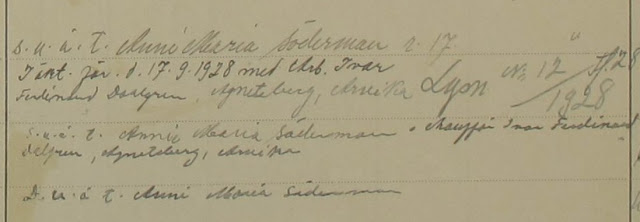 s. u. å. t. Anni Maria Söderman r. 17
I äkt. för. d. 17.9.1928 med Arb. Ivar
Ferdinand Dahlgren, Agneteberg, Arvika Lysn No 12 " 1928
s. u. å t. Annie Maria Söderman o. Ivar Ferdinand
Agneteberg, Arvika
D. u. å t. Anni Maria Söderman